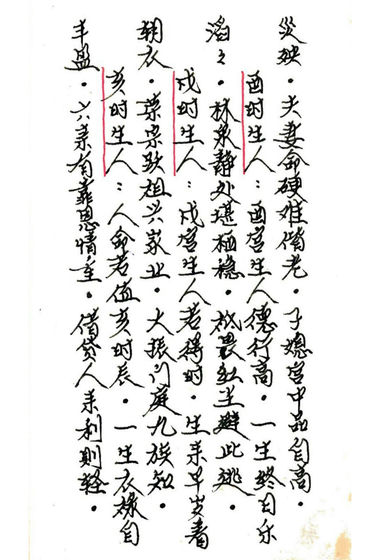 災殃。夫妻命硬难偕老。子媳宮中品自高。
酉时生人：酉宮生人德行高。一生终日乐
滔々。林泉静处堪栖稳。祗畏红尘避此逃。
戍时生人：戍宮生人若得时。生来早岁着
朝衣。荣宗祖兴家业。大振门庭九族知。
亥时生人：人命若值亥时辰。一生衣禄自
丰盈。六亲有靠恩情重。借贷人来利则轻。